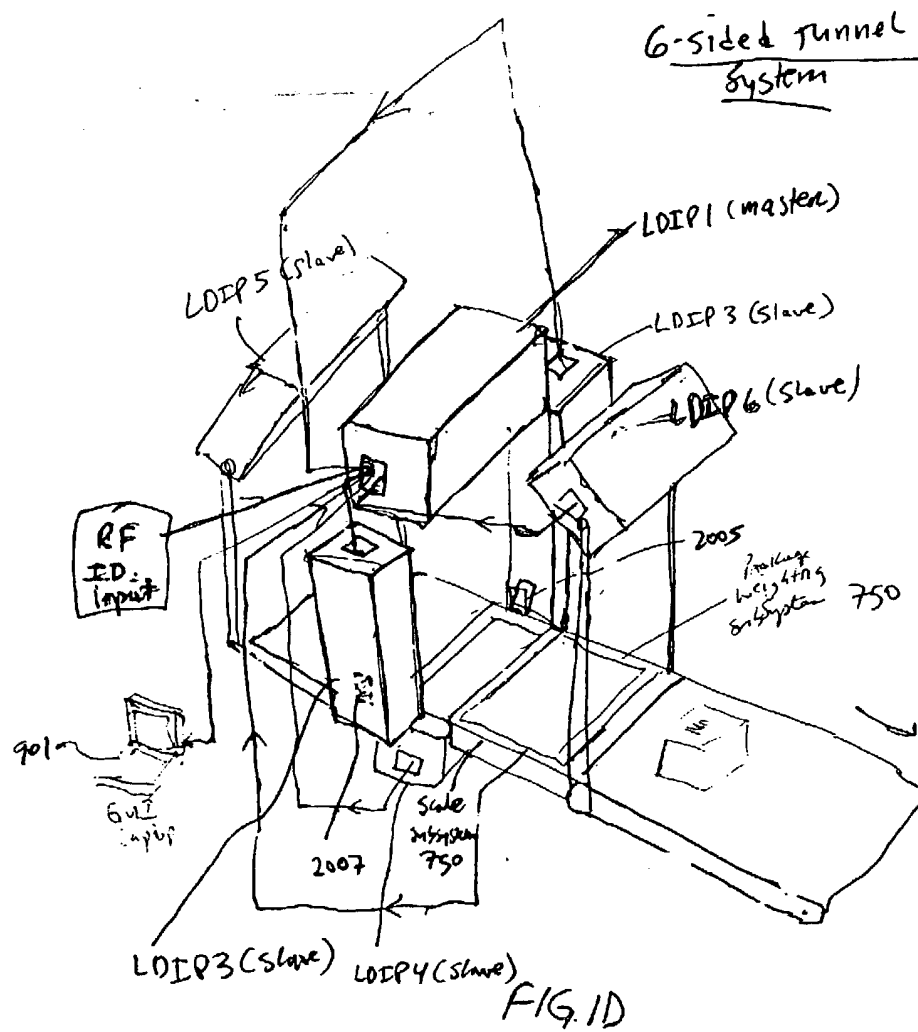 6-sided Tunnel
System
LDIP1 (master)
LDIP5 (slave)
LDIP3 (slave)
LDIP6 (slave)
RF
I.D.
Input
2005
Package
weighing
subsystem 750
901
GUI
input
Scale
subsystem
750
2007
LDIP3 (slave)
LDIP4 (slave)
FIG. 1D